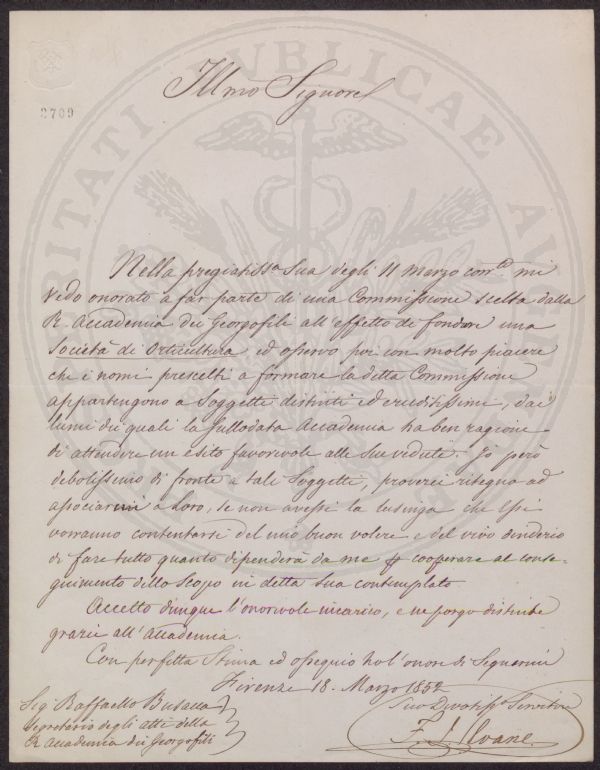 PROSPERITATI PUBLICAE AUGENDAE
2709
Illmo Signore
Nella pregiatissa Sua degli 11 Marzo corrte mi
vedo onorato a far parte di una Commissione scelta dalla
R. Accademia dei Georgofili all'effetto di fondare una
Società di Orticultura, ed osservo poi con molto piacere
che i nomi prescelti a formare la detta Commissione
appartengono a Soggetti distinti ed eruditissimi, dai
lumi dei quali la Sullodata Accademia ha ben ragione
di attendere un esito favorevole alle Sue vedute. Io però
debolissimo di fronte a tali Soggetti, proverei ritegno ad
associarmi a Loro, se non avessi la lusinga che Essi
vorranno contentarsi del mio buon volere e del vivo desiderio
di fare tutto quanto dipenderà da me p cooperare al conse-
guimento dello Scopo in detta Sua contemplato.
Accetto dunque l'onorevole incarico, e ne porgo distinte
grazie all'Accademia.
Con perfetta Stima ed ossequio ho l'onore di Segnarmi
Firenze 18. Marzo 1852
Suo Devotiss Servitore
F. J. Sloane.
Sig. Raffaello Busacca
Segretario degli atti della
R. Accademia dei Georgofili